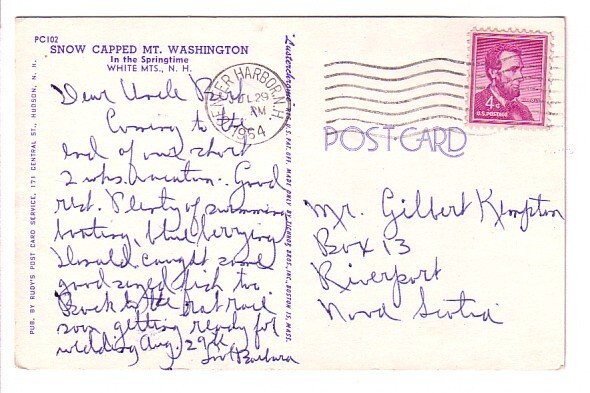 PC102
SNOW CAPPED MT. WASHINGTON
In the Springtime
WHITE MTS., N. H.
Dear Uncle Bert
Coming to the
end of our short
2 wks. vacation. Good
rest. Plenty of swimming
boating, blueberrying
Donald caught some
good sized fish too.
Back to the rat race
soon getting ready for
wedding Aug. 29th
Barbara
PUB. BY RUDY'S POST CARD SERVICE, 171 CENTRAL ST., HUDSON, N. H.
"Lusterchrome" REG. U. S. PAT. OFF. MADE ONLY BY TICHNOR BROS., INC., BOSTON 15, MASS.
CENTER HARBOR, N.H.
JUL 29
PM
1964
4¢
U.S. POSTAGE
POST CARD
Mr. Gilbert Kempton
Box 13
Riverport
Nova Scotia